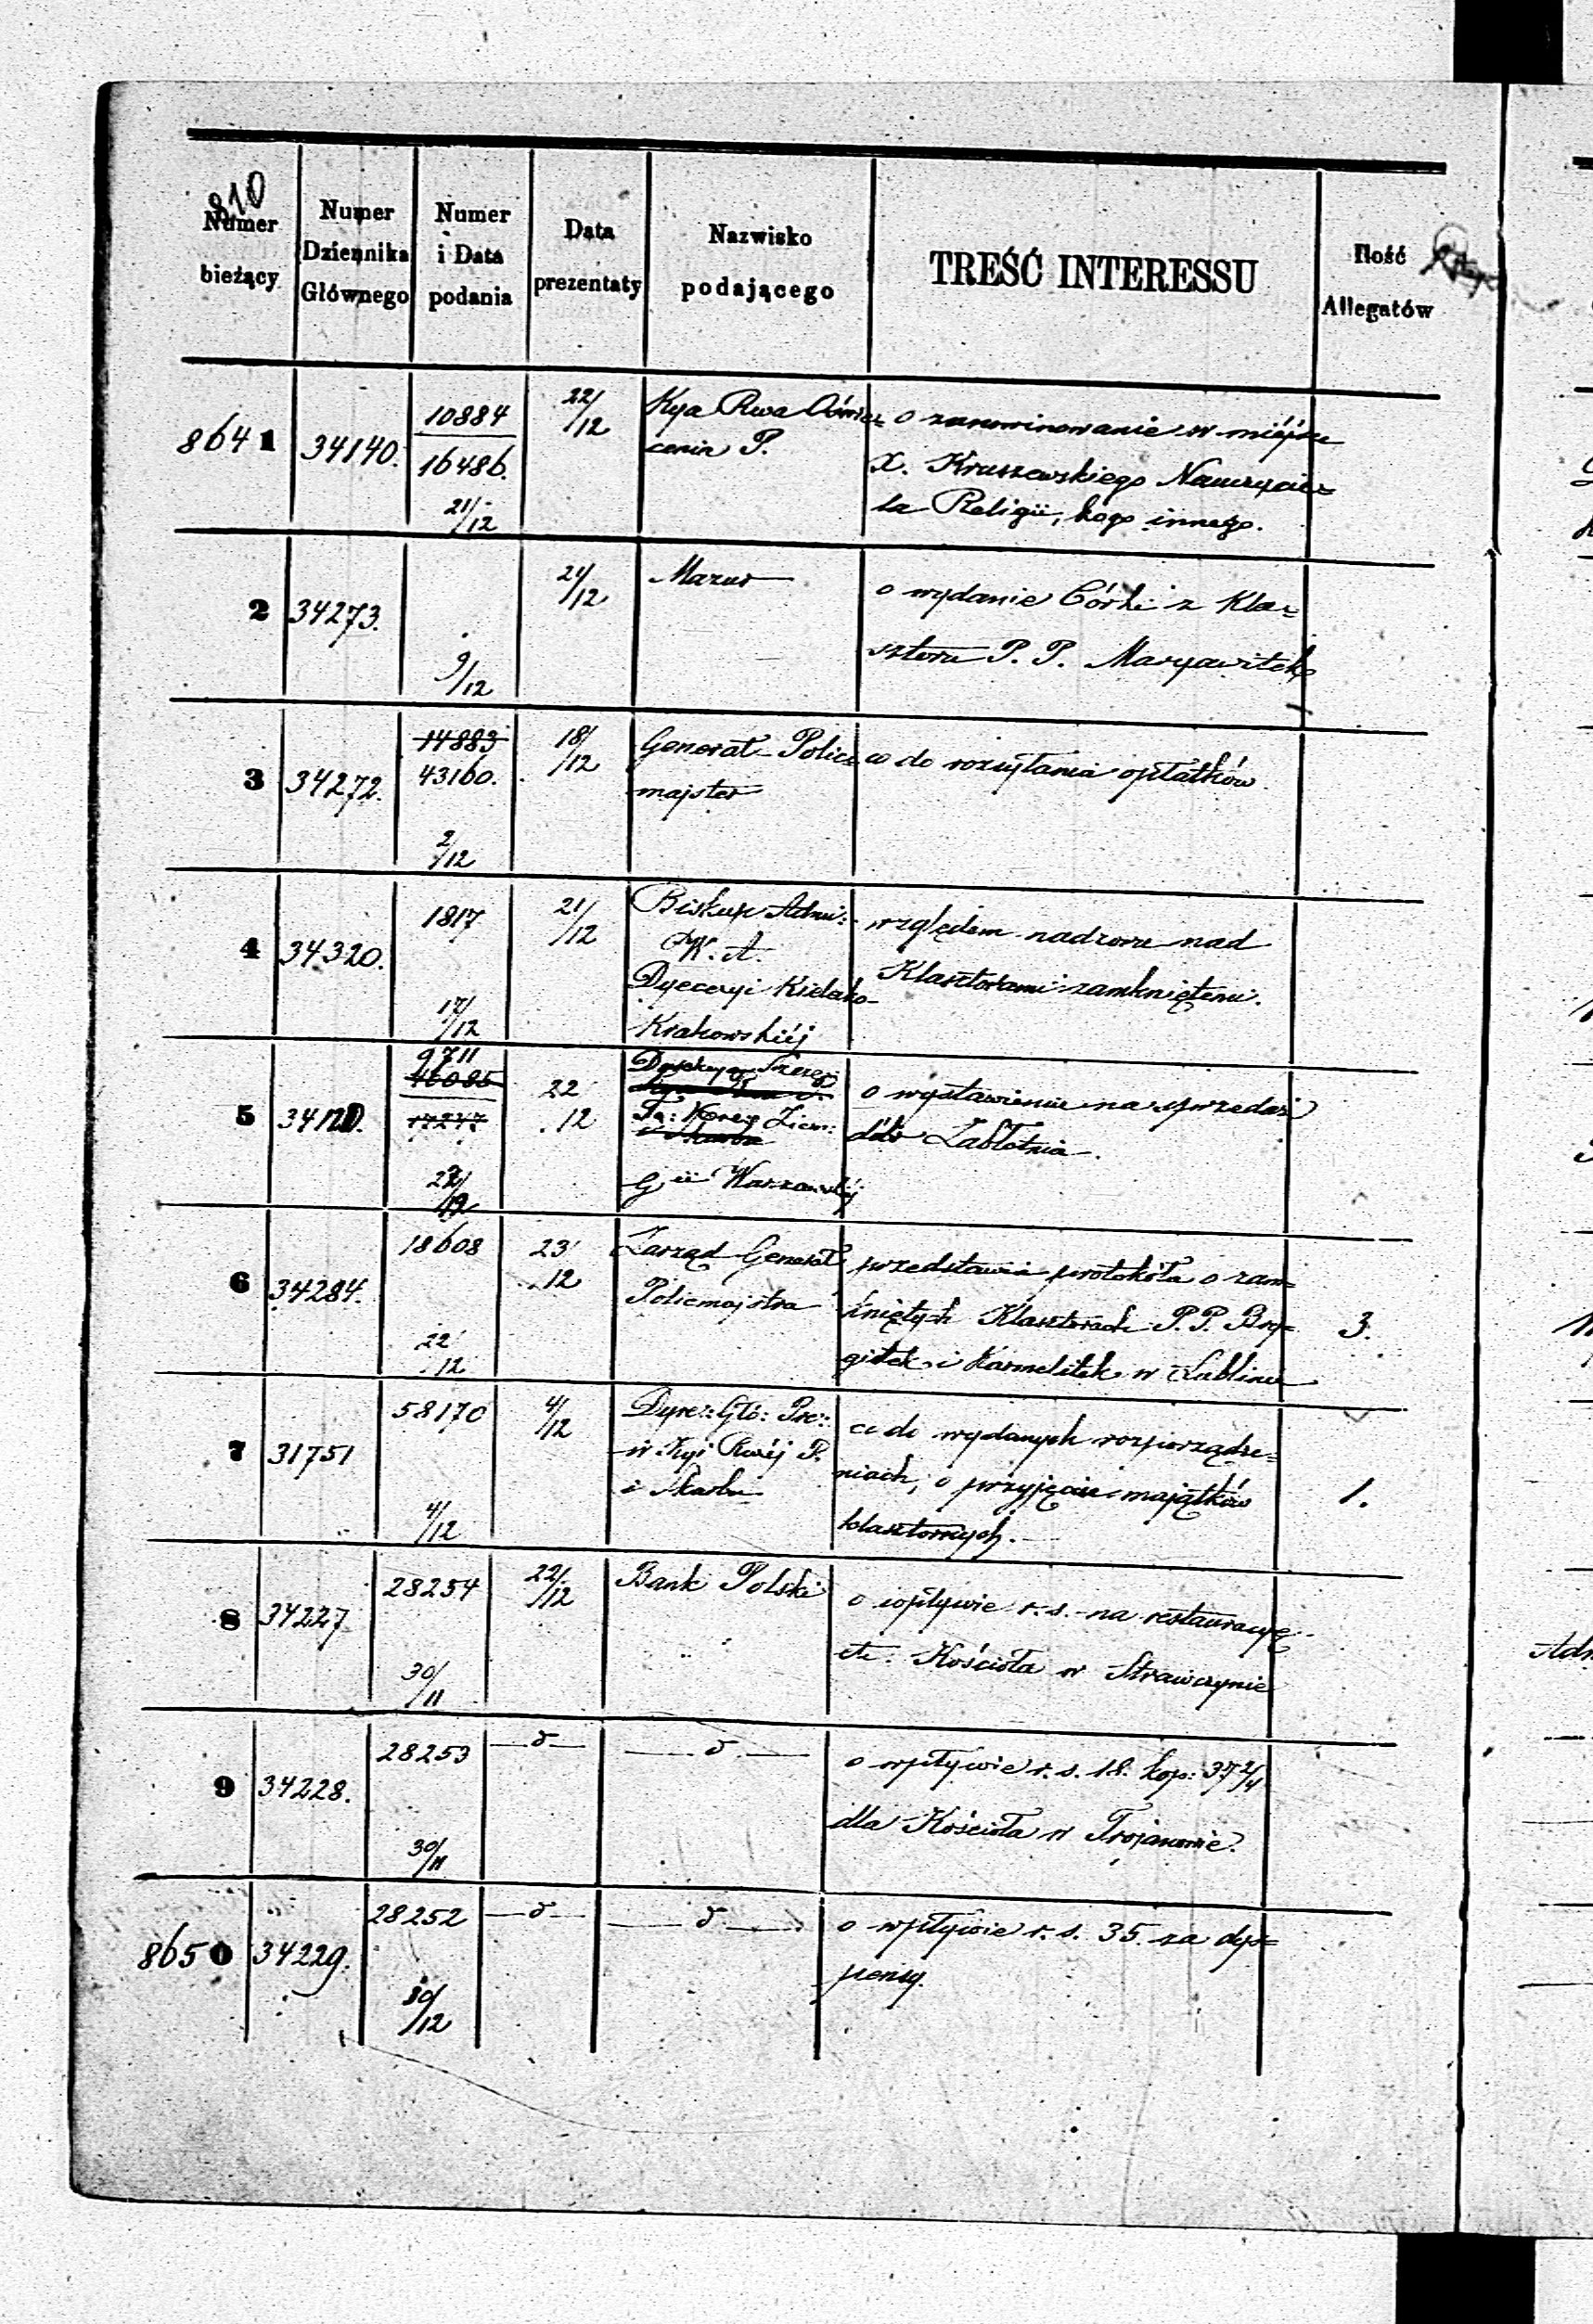 810
Numer bieżący
Numer Dziennika Głównego
Numer i Data podania
Data prezentaty
Nazwisko podającego
TREŚĆ INTERESSU
Ilość Allegatów
8641 34140. 10884 22/12 Kya Rwa Oświe- o zanominowanie w miéjsce
16486. cenia P. X. Kruszewskiego Nauczycie-
21/12 la Religii, kogo innego.
2 34273. 21/12 Mazur o wydanie Córki z Kla-
9/12 sztoru P. P. Maryawitek
3 34272. 14883 18/12 Generał Polic- co do rozsyłania opłatków
43160. majster
2/12
4 34320. 1817 21/12 Biskup Admi: względem nadzoru nad
W. A. Klasztorami zamkniętemi.
17/12 Dyecezyi Kielecko-
Krakowskiéj
5 9711 22/12 Dyrekcya Szczeg.
16085 o wystawienie na sprzedaż
17277 To: Kred: Ziem: dóbr Zabłotnia.
Gii Warszawskiéj
6 34284. 18608 23/12 Zarząd Generał przedstawia protokóła o zam-
Policmajstra kniętych Klasztorach P. P. Bry- 3.
22/12 gitek i Karmelitek w Lublinie
7 31751 58170 4/12 Dyre: Głó: Pre: co do wydanych rozporządze-
w Kyi Rwéj P. niach, o przyjęcie majątków 1.
4/12 i Skarbu klasztornych.
8 34227 28254 22/12 Bank Polski o wpływie r. s. na restauracyę
30/11 etc. Kościoła w Strawczynie
9 34228. 28253 —d— —d— o wpływie r. s. 18. kop: 37 2/4
30/11 dla Kościoła w Trojanowie.
8650 34229. 28252 —d— —d— o wpływie r. s. 35. za dys-
30/12 pensę.